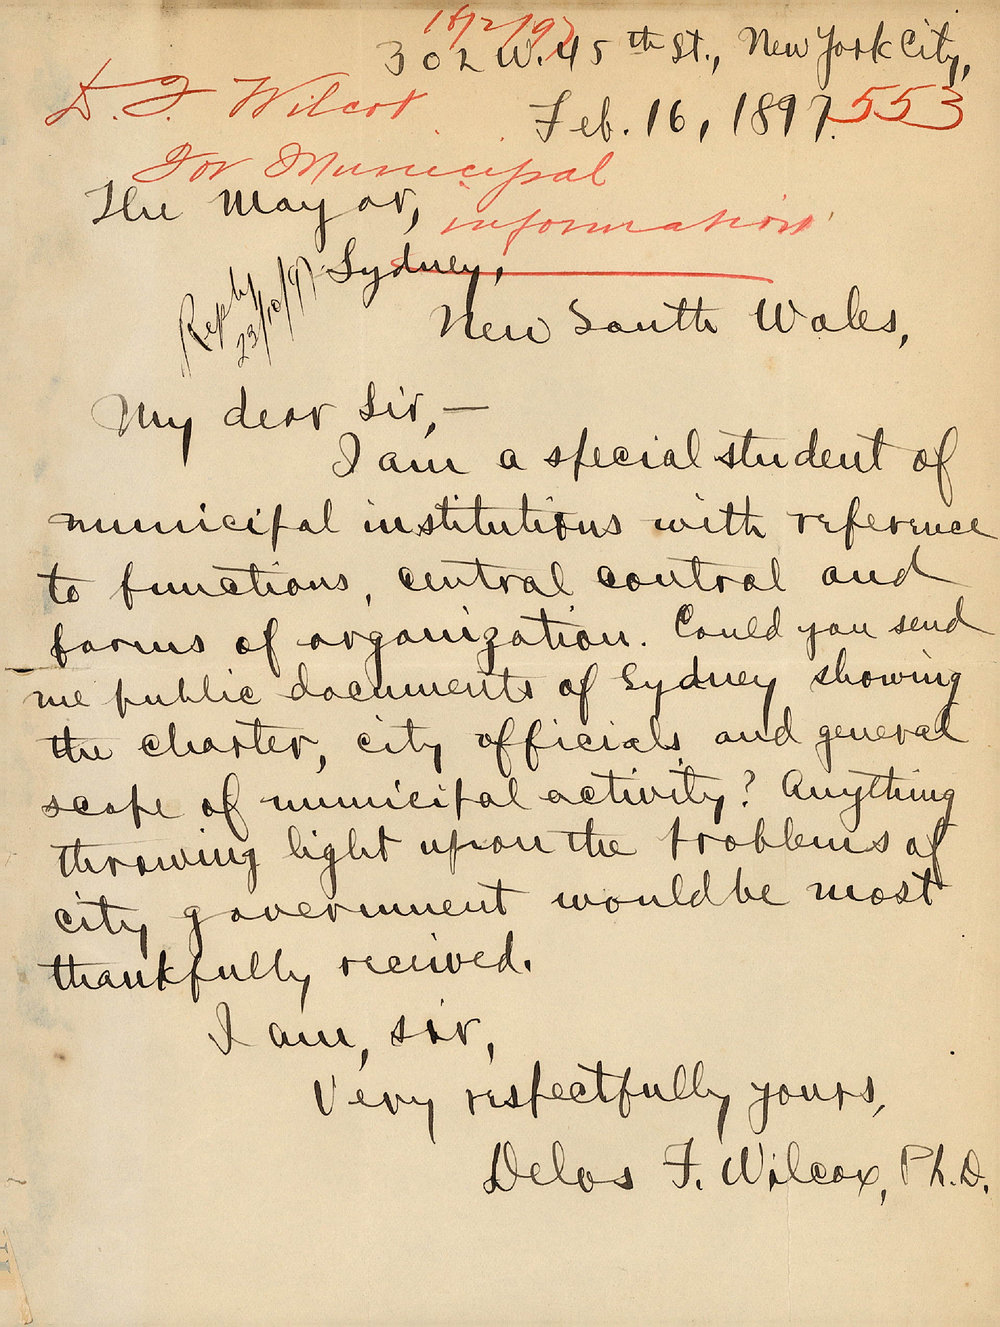 302 W. 45th St., New York City,
D. F. Wilcox
Feb. 16, 1897.
553
For Municipal
information
The Mayor,
Sydney,
Reply
23/10/97
New South Wales,
My dear Sir,—
I am a special student of
municipal institutions with reference
to functions, central control and
forms of organization. Could you send
me public documents of Sydney showing
the charter, city officials and general
scope of municipal activity? Anything
throwing light upon the problems of
city government would be most
thankfully received.
I am, sir,
Very respectfully yours,
Delos F. Wilcox, Ph.D.